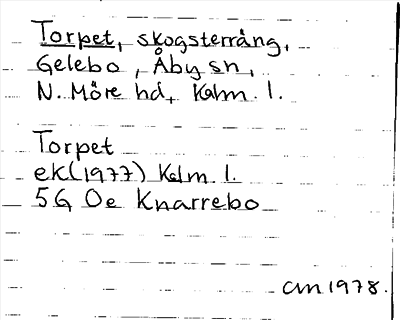 Torpet, skogsterräng,
Gelebo, Åby sn,
N. Möre hd, Kalm. l.
Torpet
ek (1977) Kalm. l.
5G 0e Knarrebo
cm 1978.